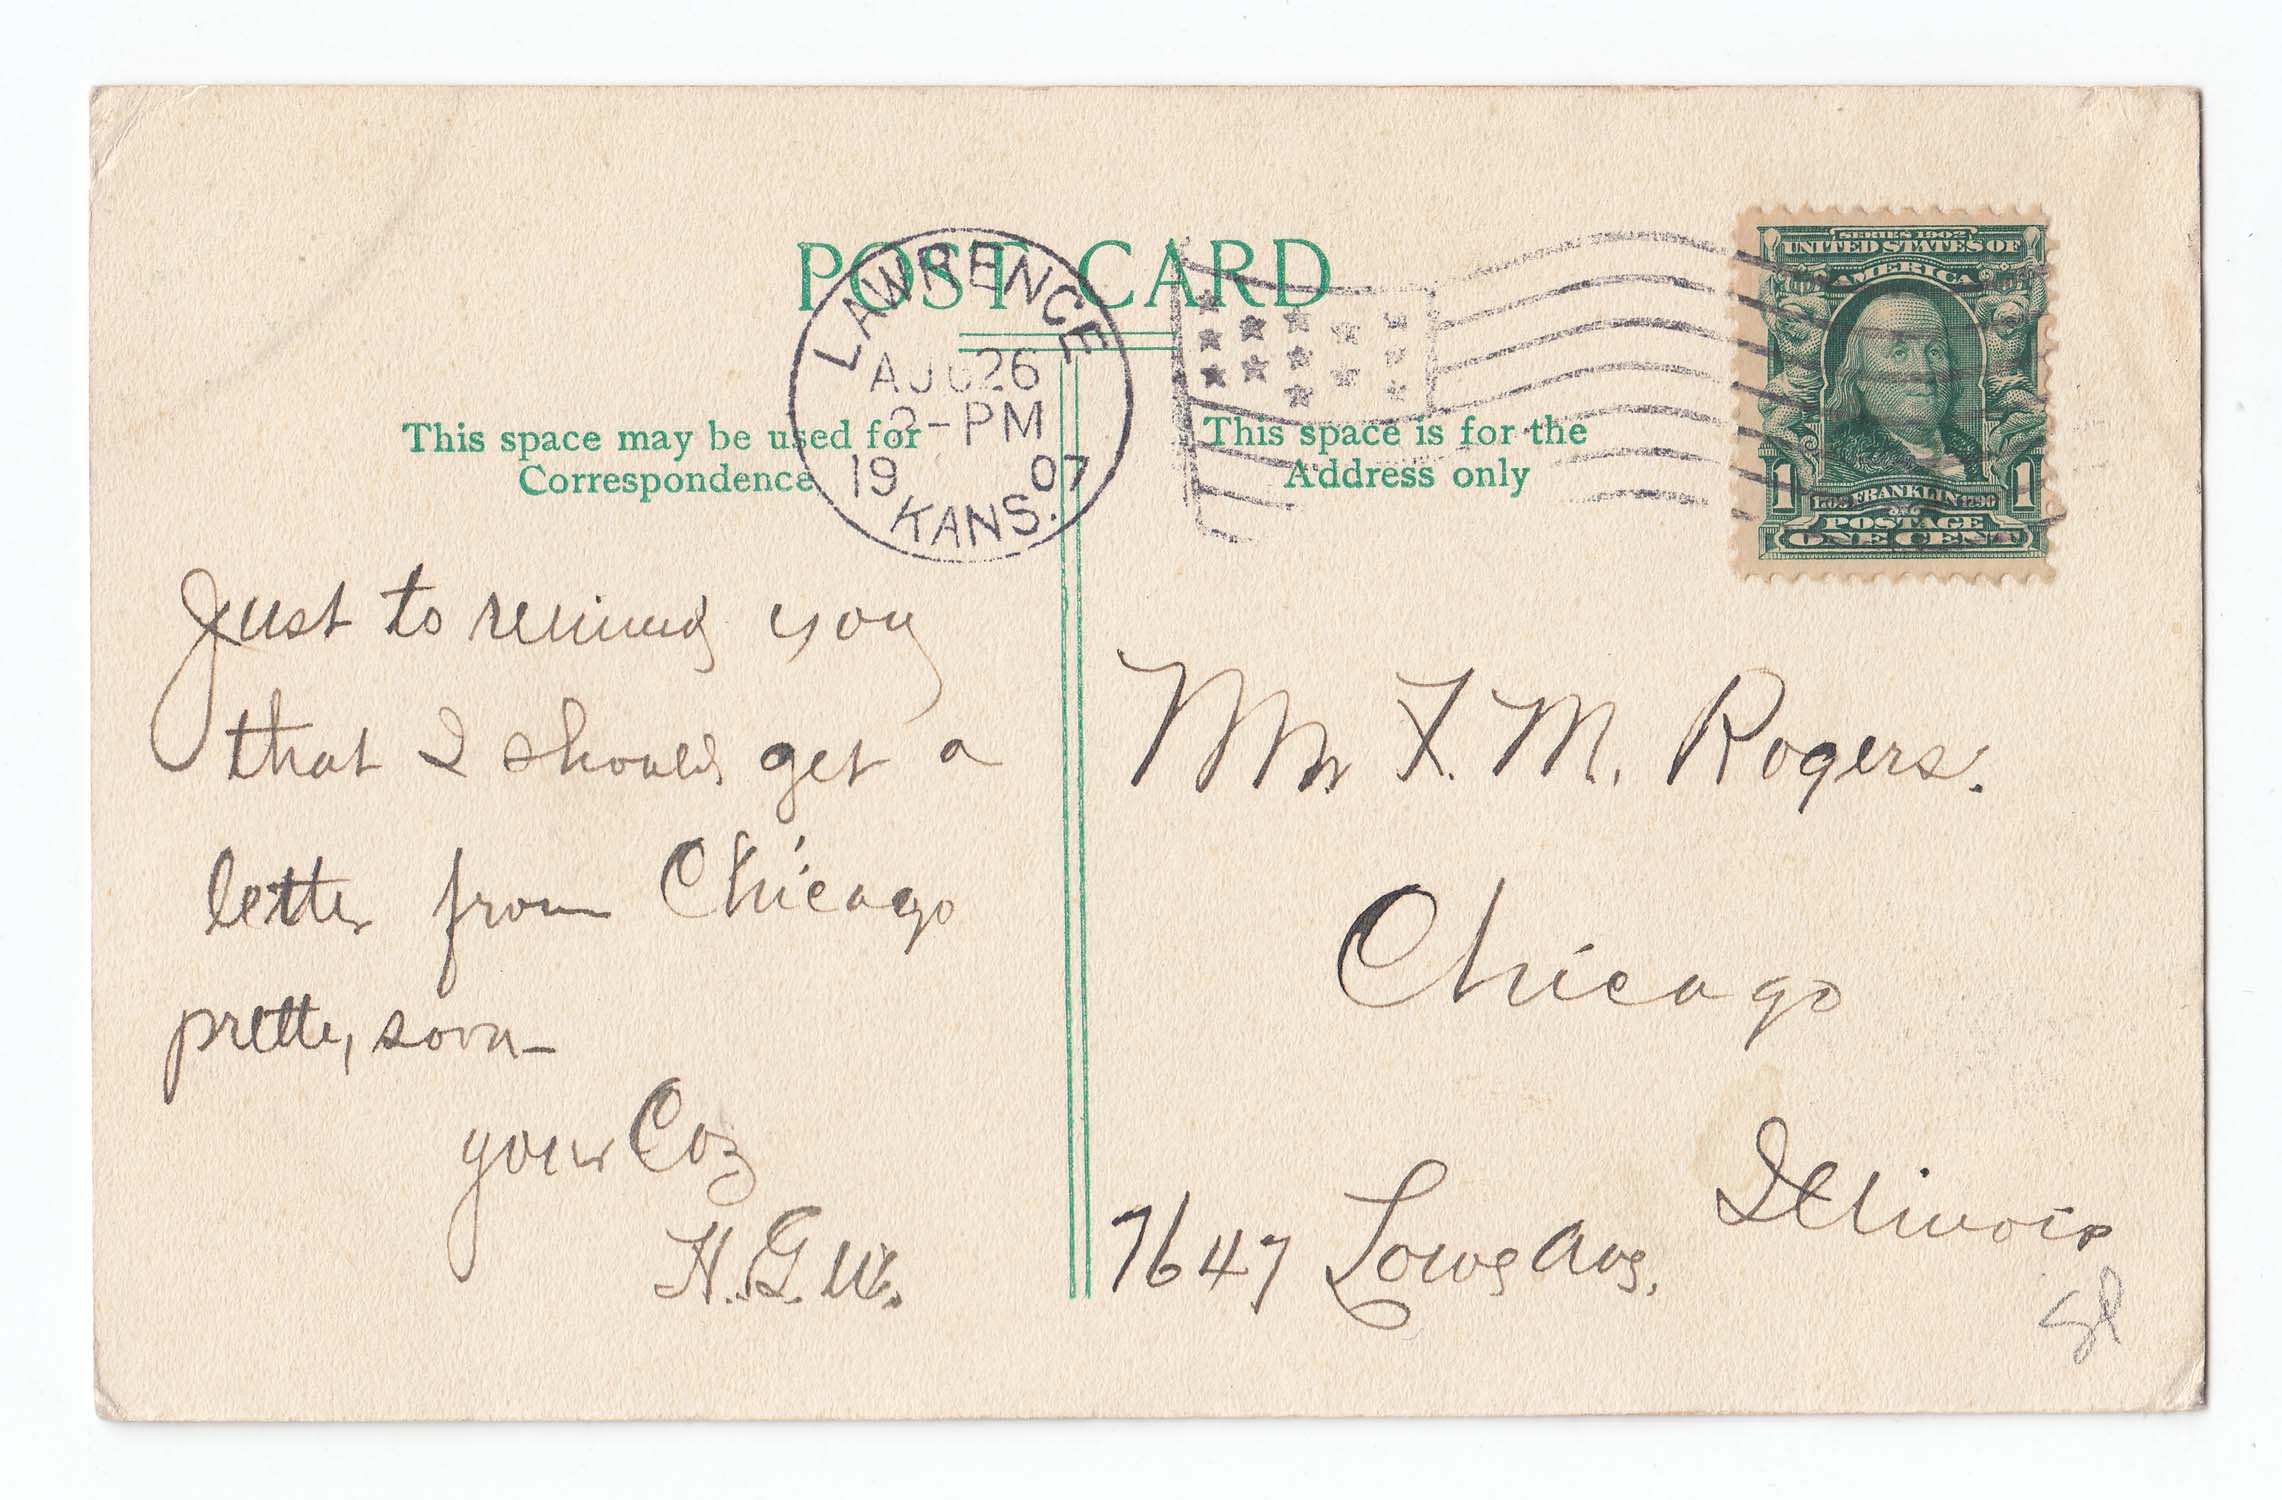 POST CARD
LAWRENCE
AUG 26
-PM
19 07
KANS.
SERIES 1902
UNITED STATES OF
AMERICA
1 1
1706 FRANKLIN 1790
POSTAGE
ONE CENT
This space may be used for
Correspondence
This space is for the
Address only
Just to remind you
that I should get a
letter from Chicago
pretty soon—
your Coz
H. G. W.
Mr. F. M. Rogers.
Chicago
Illinois
7647 Lowe Ave.